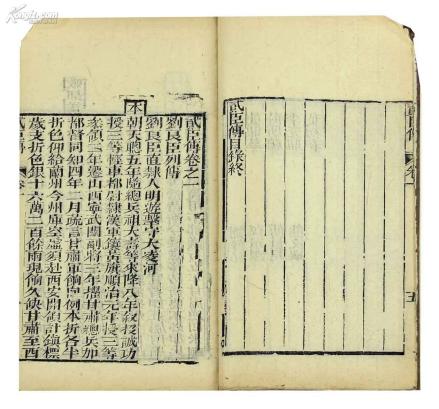 貳臣傳目錄終
貳臣傳卷之一
劉良臣列傳
劉良臣直隸人明遊擊守大凌河
本
朝天聰五年隨總兵祖大壽等來降八年敘投誠功
授三等輕車都尉隸漢軍鑲黃旗順治元年授三等
參領三年遷山西寧武關副將三年擢甘肅總兵加
都督同知四年二月疏言甘肅軍餉向例本折各半
折色仰給蘭州今州庫空虛須赴西安關領計鎮標
歲支折色銀十六萬二百餘兩現餉久缺甘肅至西